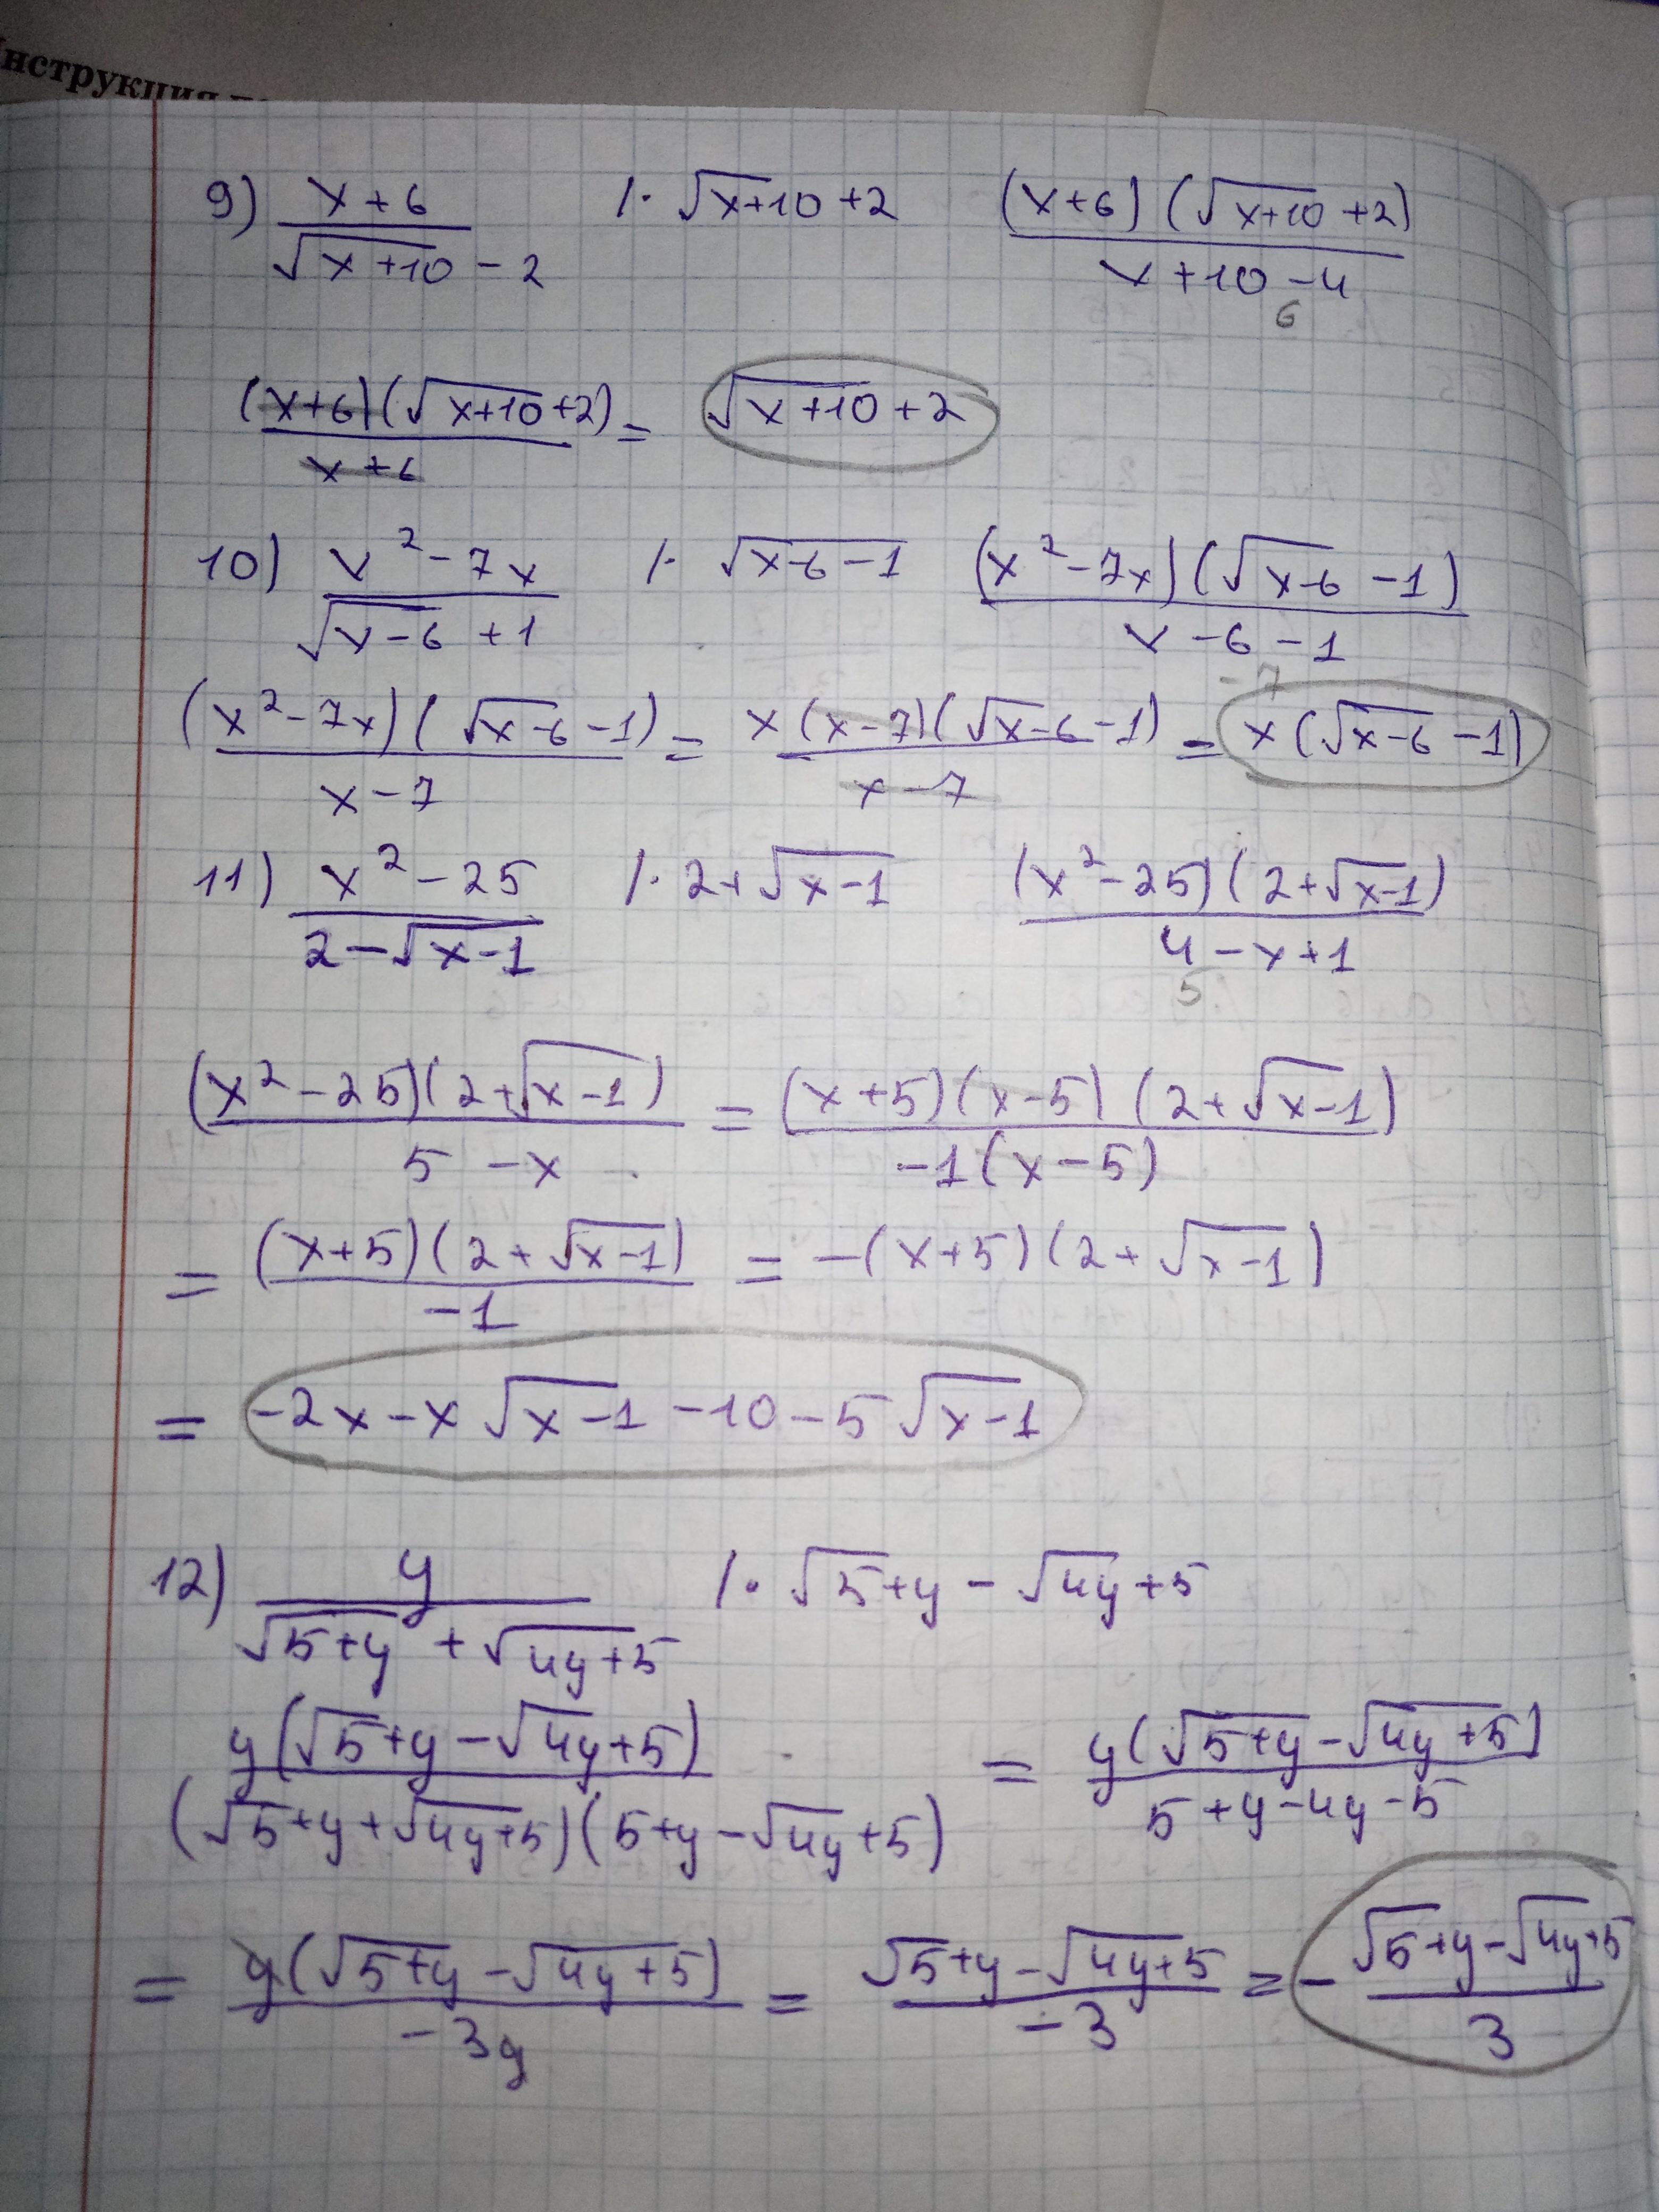 Инструкция
9) (x+6)/(√(x+10) - 2) /· √(x+10) + 2 (x+6)(√(x+10) + 2)/(x+10-4)
6
(x+6)(√(x+10) + 2)/(x+6) = √(x+10) + 2
10) (x² - 7x)/(√(x-6) + 1) /· √(x-6-1) (x² - 7x)(√(x-6) - 1)/(x-6-1)
-7
(x² - 7x)(√(x-6) - 1)/(x-7) = x(x-7)(√(x-6) - 1)/(x-7) = x(√(x-6) - 1)
11) (x² - 25)/(2 - √(x-1)) /· 2 + √(x-1) (x² - 25)(2 + √(x-1))/(4 - x + 1)
5
(x² - 25)(2 + √(x-1))/(5 - x) = (x+5)(x-5)(2 + √(x-1))/(-1(x-5))
= (x+5)(2 + √(x-1))/(-1) = -(x+5)(2 + √(x-1))
= -2x - x√(x-1) - 10 - 5√(x-1)
12) y/(√(5+y) + √(4y+5)) /· √5+y - √4y+5
y(√5+y - √4y+5)/((√5+y + √(4y+5))(5+y - √4y+5)) = y(√(5+y) - √(4y+5))/(5+y-4y-5)
= y(√(5+y) - √(4y+5))/(-3y) = (√5+y - √(4y+5))/(-3) = -(√5+y - √4y+5)/3